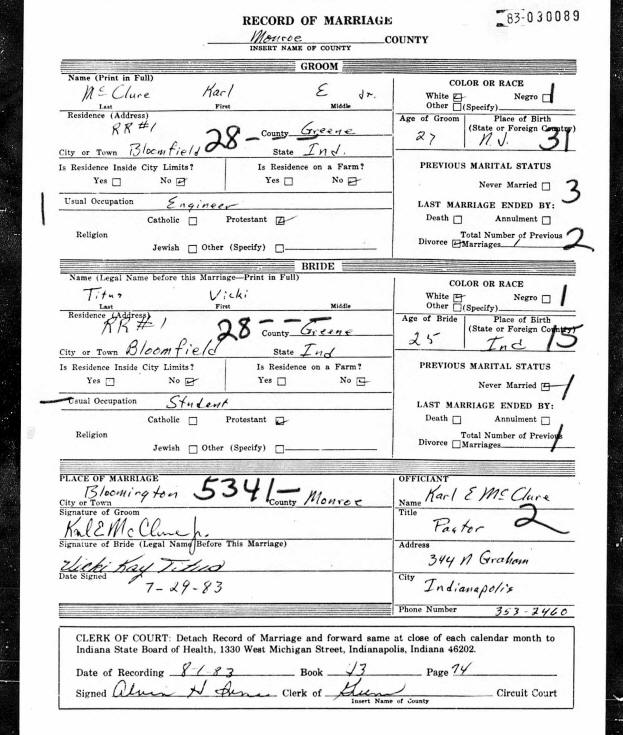 RECORD OF MARRIAGE
83-030089
Monroe COUNTY
INSERT NAME OF COUNTY
GROOM
Name (Print in Full)
McClure Karl E Jr.
Last First Middle
Residence (Address)
RR #1
28 - County Greene
City or Town Bloomfield State Ind.
Is Residence Inside City Limits? Is Residence on a Farm?
Yes No Yes No
Usual Occupation Engineer
Catholic Protestant
Religion
Jewish Other (Specify)
COLOR OR RACE
White Negro 1
Other (Specify)
Age of Groom Place of Birth
(State or Foreign Country)
27 N.J. 31
PREVIOUS MARITAL STATUS
Never Married 3
LAST MARRIAGE ENDED BY:
Death Annulment
Total Number of Previous 2
Divorce Marriages 1
BRIDE
Name (Legal Name before this Marriage—Print in Full)
Titus Vicki
Last First Middle
Residence (Address)
RR #1
28 - - - County Greene
City or Town Bloomfield State Ind
Is Residence Inside City Limits? Is Residence on a Farm?
Yes No Yes No
Usual Occupation Student
Catholic Protestant
Religion
Jewish Other (Specify)
COLOR OR RACE
White Negro 1
Other (Specify)
Age of Bride Place of Birth
(State or Foreign Country)
25 Ind 15
PREVIOUS MARITAL STATUS
Never Married 1
LAST MARRIAGE ENDED BY:
Death Annulment
Total Number of Previous 1
Divorce Marriages
PLACE OF MARRIAGE
Bloomington 5341- Monroe
City or Town County
Signature of Groom
Karl E McClure Jr.
Signature of Bride (Legal Name Before This Marriage)
Vicki Kay Titus
Date Signed
7-29-83
OFFICIANT
Name Karl E McClure
Title
Pastor 2
Address
344 N Graham
City
Indianapolis
Phone Number 353-2460
CLERK OF COURT: Detach Record of Marriage and forward same at close of each calendar month to
Indiana State Board of Health, 1330 West Michigan Street, Indianapolis, Indiana 46202.
Date of Recording 8-1-83 Book 13 Page 74
Signed Alvin H Clerk of Circuit Court
Insert Name of County